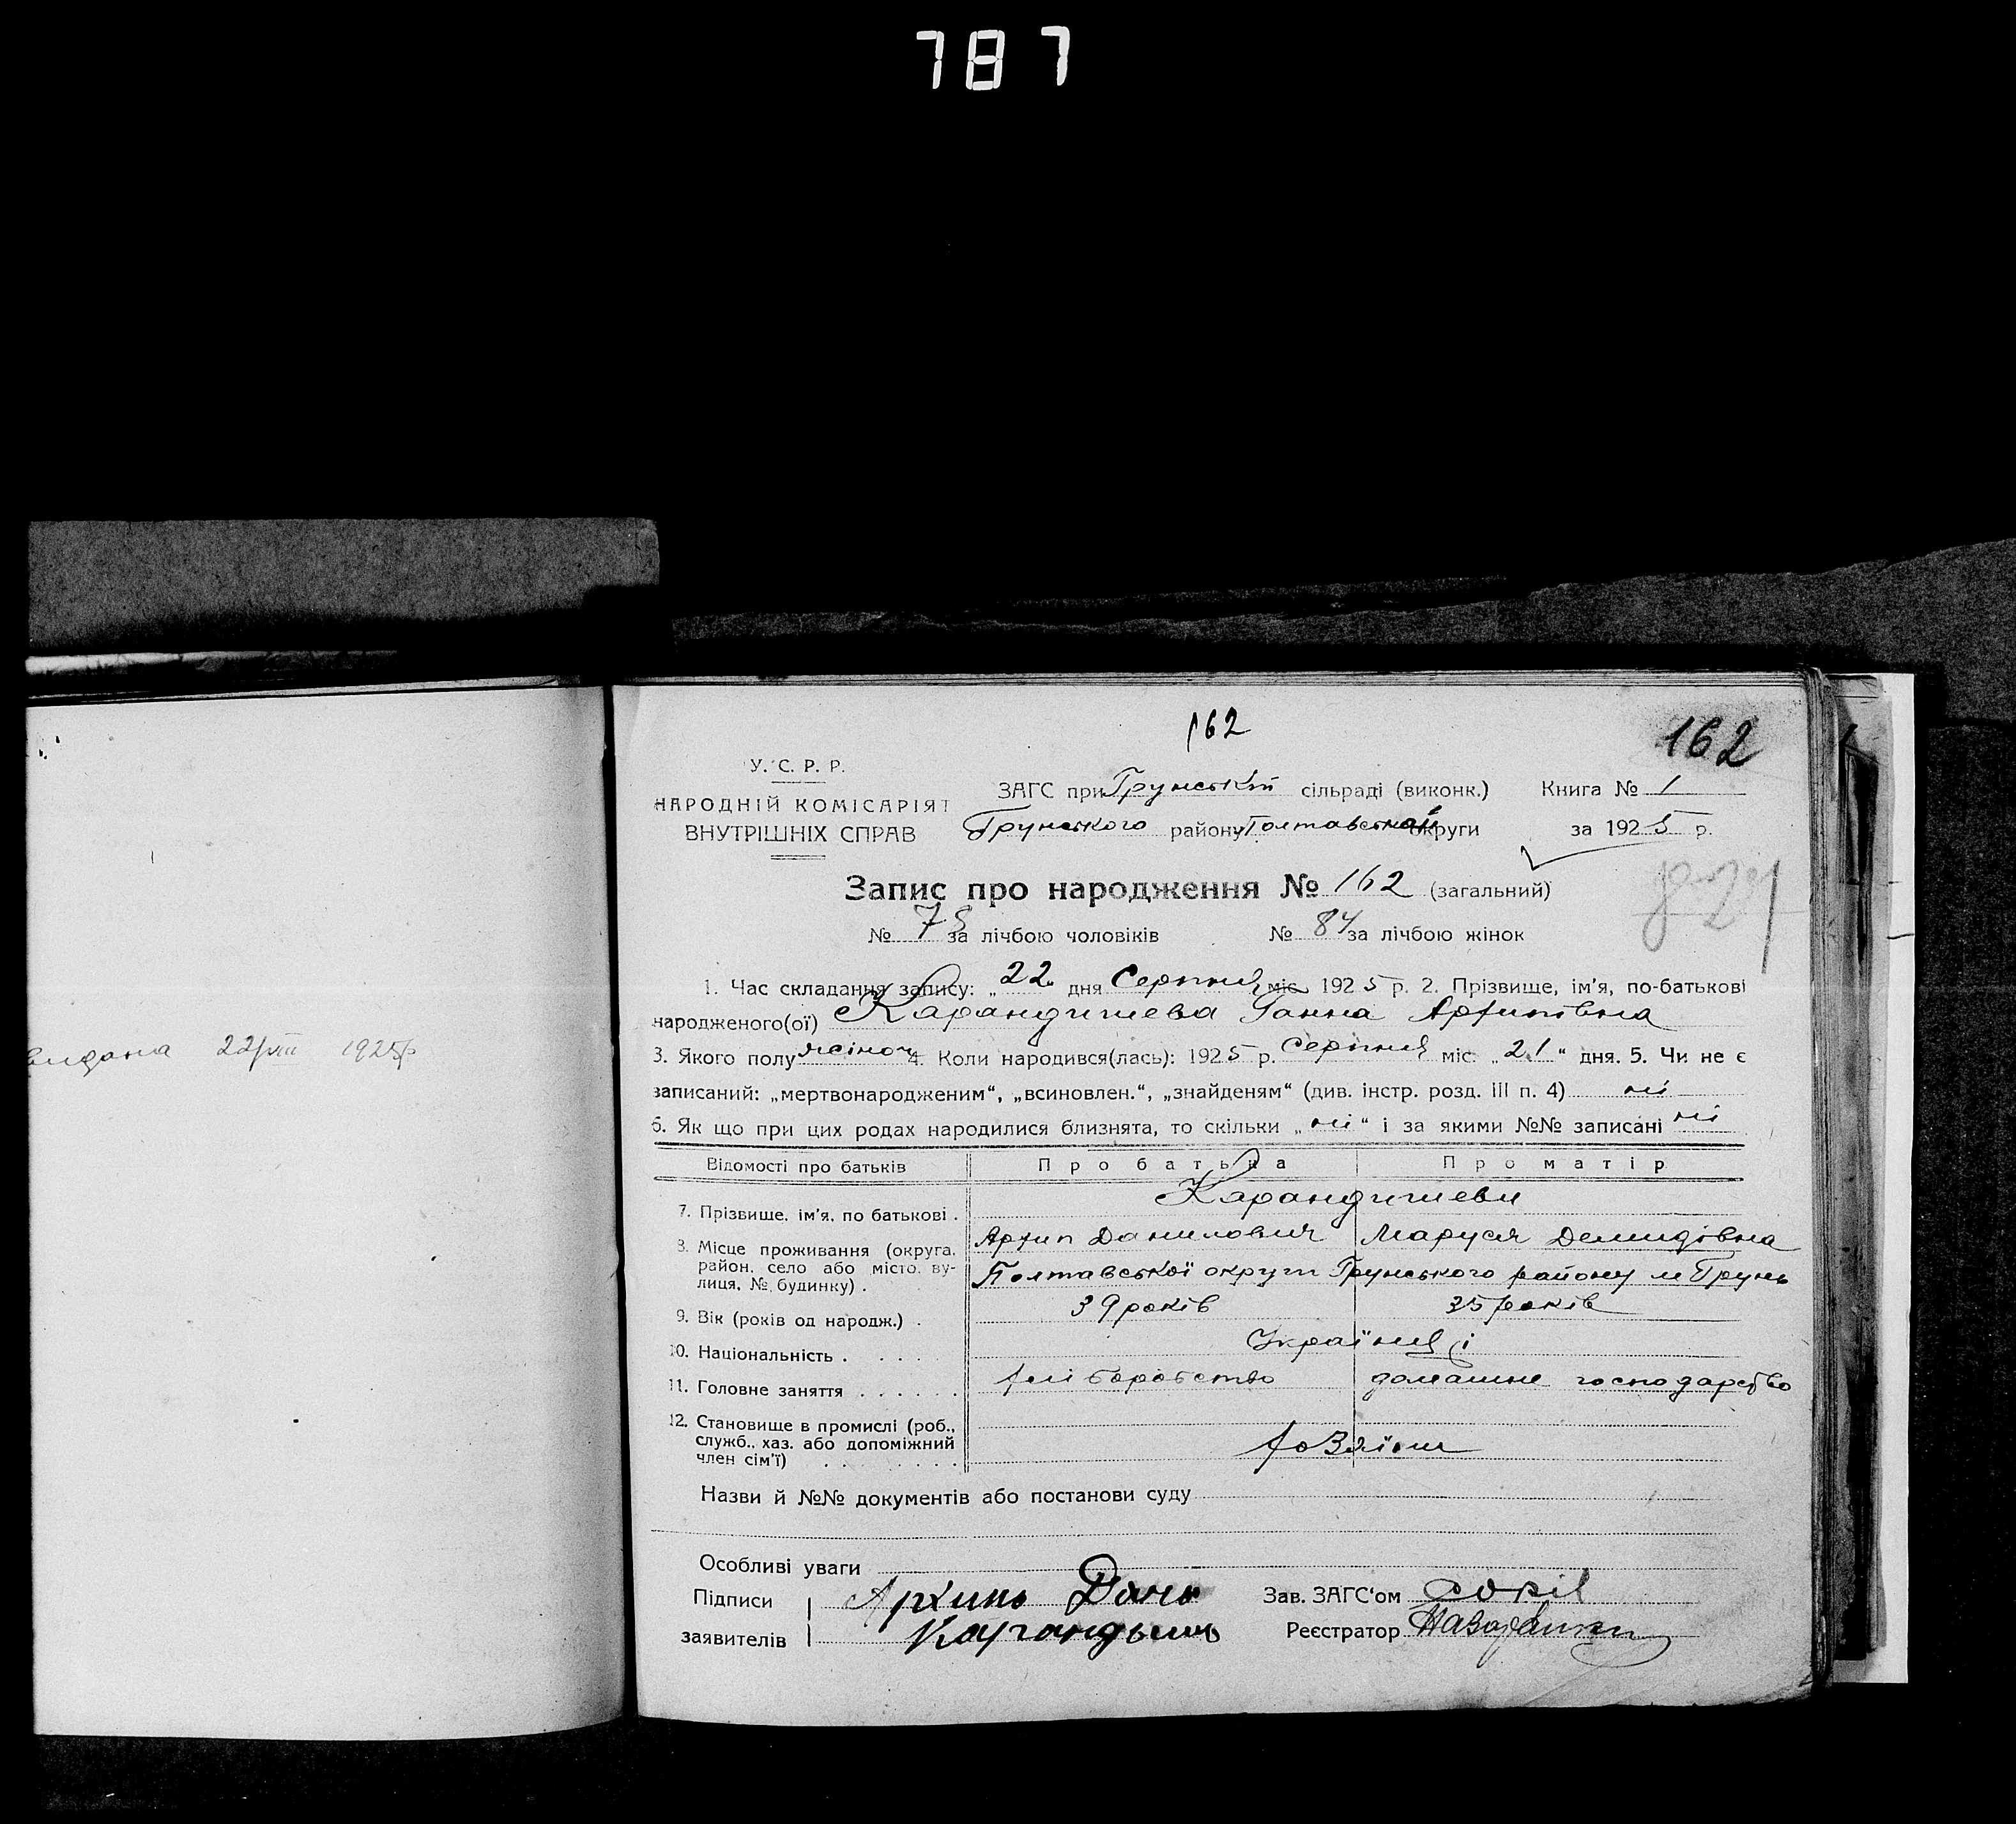 787
162
162
У. С. Р. Р.
НАРОДНІЙ КОМІСАРІЯТ
ВНУТРІШНІХ СПРАВ
ЗАГС при Грунській сільраді (виконк.) Книга № 1
Грунського району Полтавської округи за 1925 р.
Запис про народження № 162 (загальний)
№ 78 за лічбою чоловіків № 84 за лічбою жінок
1. Час складання запису: „22“ дня Серпня міс. 1925 р. 2. Прізвище, ім'я, по-батькові
народженого(ої) Карандишева Ганна Архипівна
3. Якого полу жіноч. 4. Коли народився(лась): 1925 р. Серпня міс. „21“ дня. 5. Чи не є
записаний: „мертвонародженим“, „всиновлен.“, „знайденям“ (див. інстр. розд. III п. 4) ні
6. Як що при цих родах народилися близнята, то скільки „ні“ і за якими №№ записані ні
Відомості про батьків Про батька Про матір
7. Прізвище, ім'я, по батькові . Карандишеви
Архип Данилович Маруся Демидівна
8. Місце проживання (округа, район, село або місто, вулиця, № будинку) . Полтавської округи Грунського району м Грунь
9. Вік (років од народж.) . 39 років 35 років
10. Національність . . . . . Українці
11. Головне заняття . . . . . . хліборобство домашне господарство
12. Становище в промислі (роб.,
служб., хаз. або допоміжний
член сім'ї) . . . . . . . . хозяїни
Назви й №№ документів або постанови суду
Особливі уваги
Підписи Архипъ Дан Зав. ЗАГС'ом Сокіл
заявителів Карандыш Реєстратор
видана 22/VIII 1925р